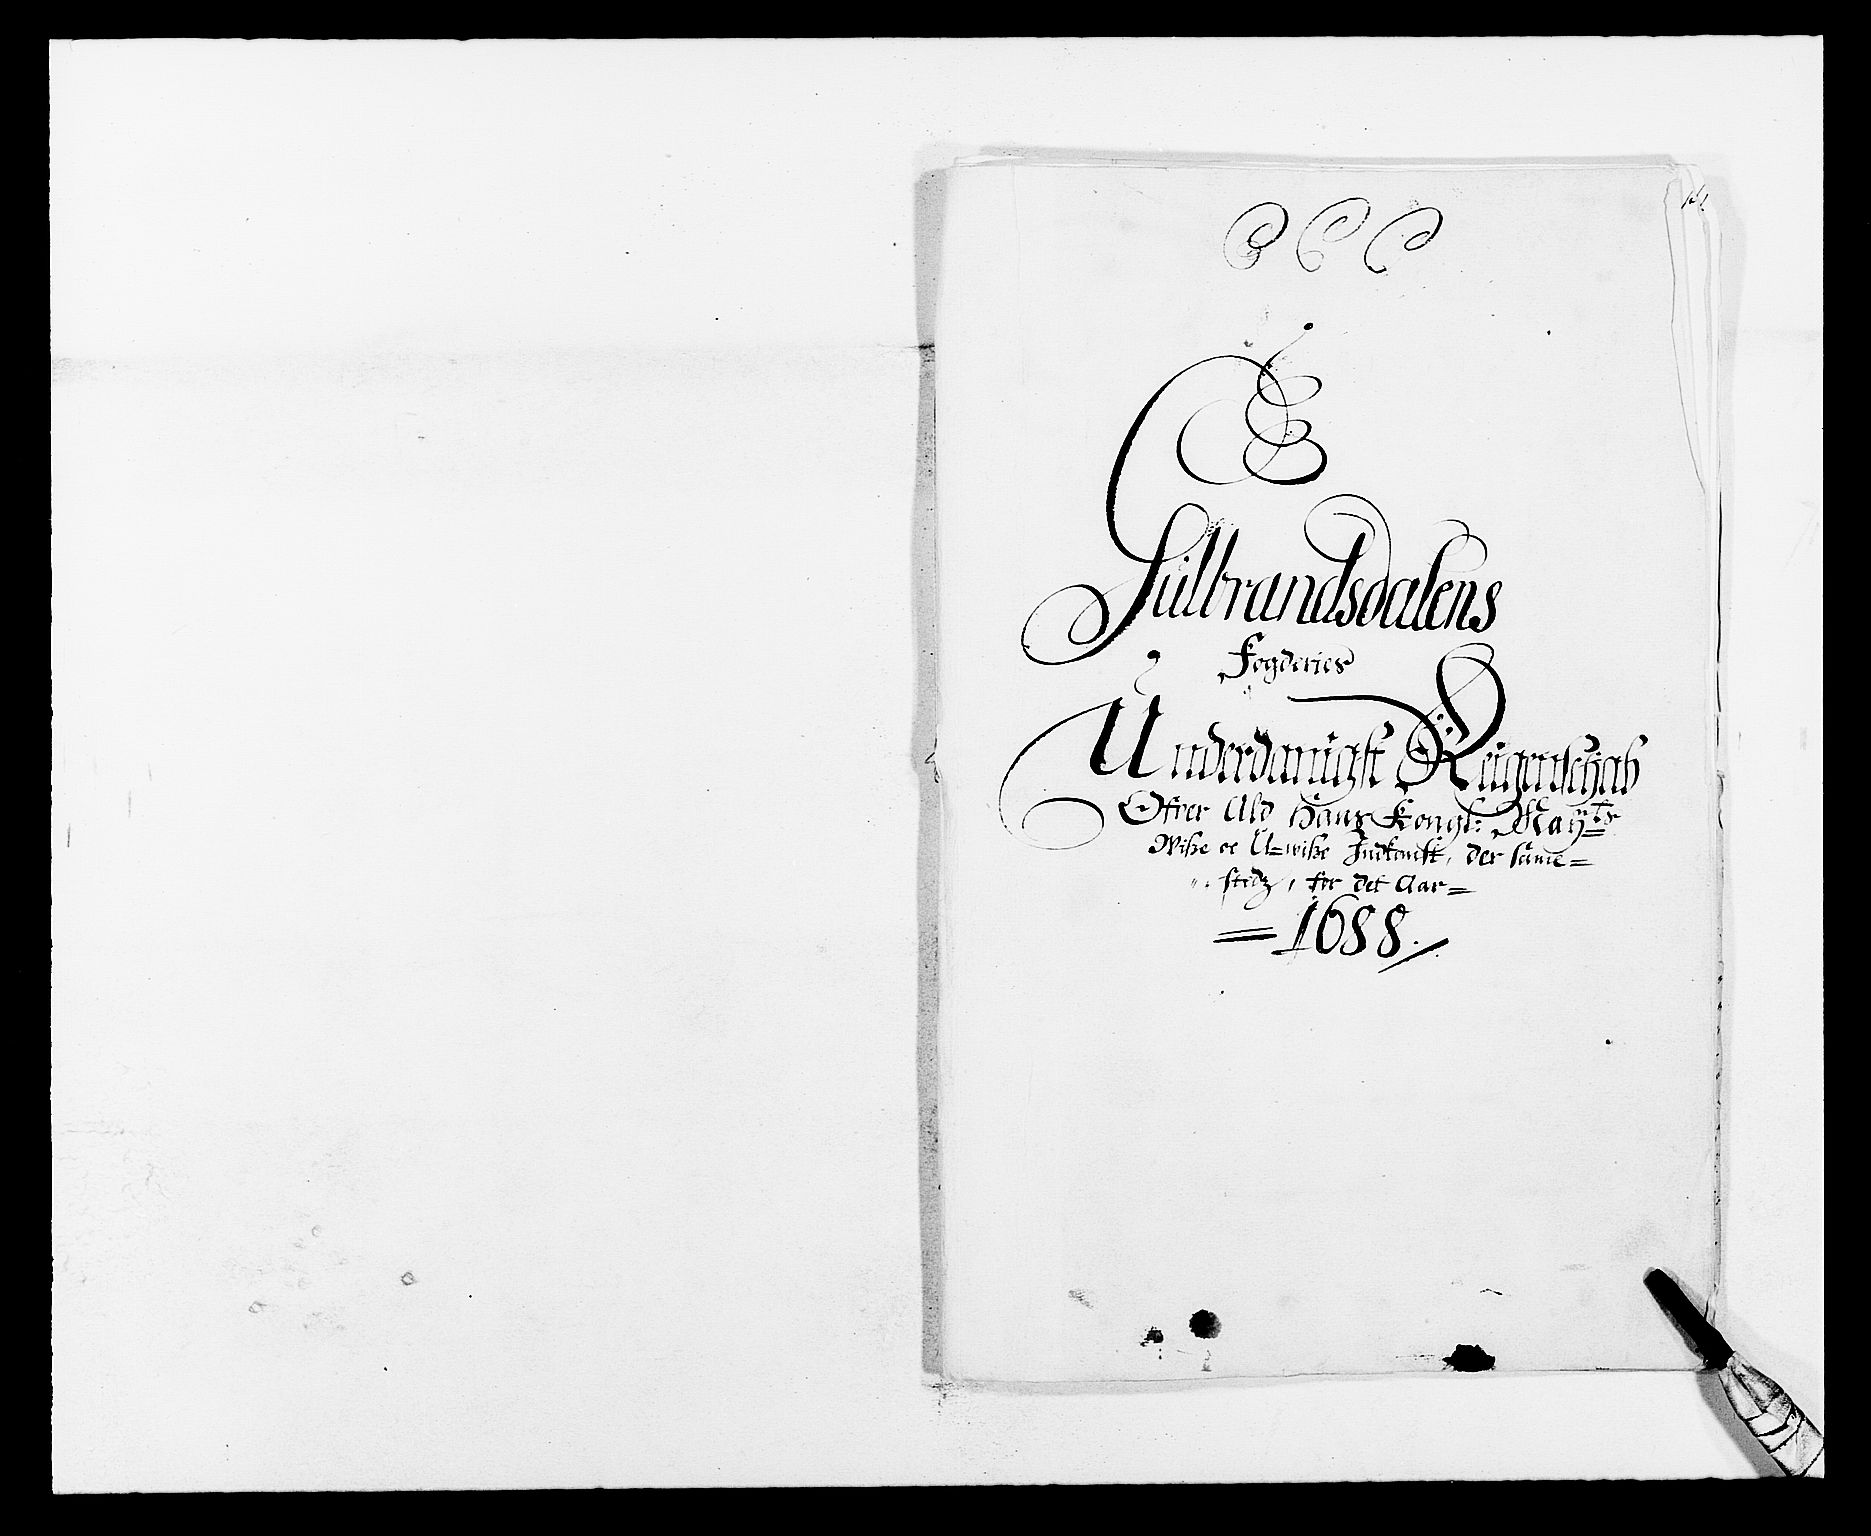 Gulbrandsdalens
Fogderies
Underdanigst Reigenschab
Ofver Ald Hans Kongl: Mayts
Wiße oc U=wiße Indkomst, der same=
stedz, for det Aar=
=1688./